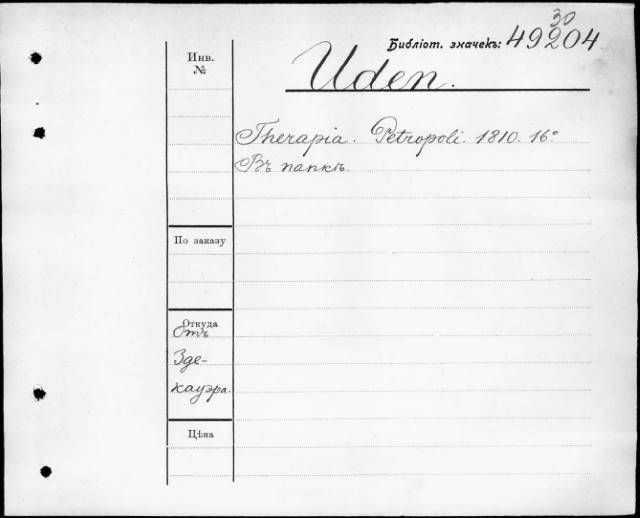 30
Библіот. значекъ: 49204
Инв.
№
Uden.
Therapia. Petropoli. 1810. 16°
Въ папкѣ.
По заказу
Откуда
Отъ
Зде-
кауэра.
Цѣна